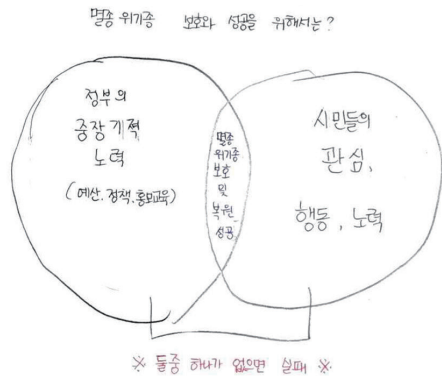 멸종 위기종 보호와 성공을 위해서는?
정부의
중장기적
노력
(예산, 정책, 홍보교육)
멸종
위기종
보호
및
복원
성공
시민들의
관심,
행동, 노력
※ 둘중 하나가 없으면 실패 ※